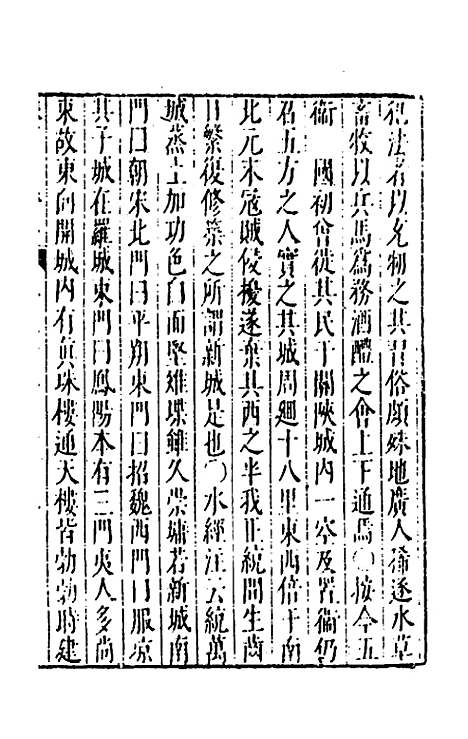 犯法者以充物之其習俗頗殊地廣人稀逐水草
畜牧以兵馬爲務酒醴之會上下通焉○按今五
衞　國初曾徙其民于關陝城内一空及置衞仍
名五方之人實之其城周迴十八里東西倍于南
北元末冦賊侵擾遂棄其西之半我正統間生齒
日繁復修築之所謂新城是也○水經注云統萬
城蒸土加功色白而堅雉堞雖久崇墉若新城南
門曰朝宋北門曰平朔東門曰招魏西門曰服凉
其子城在羅城東門曰鳳陽本有三門夷人多尚
東故東向開城内有真珠樓通天樓皆勃勃時建